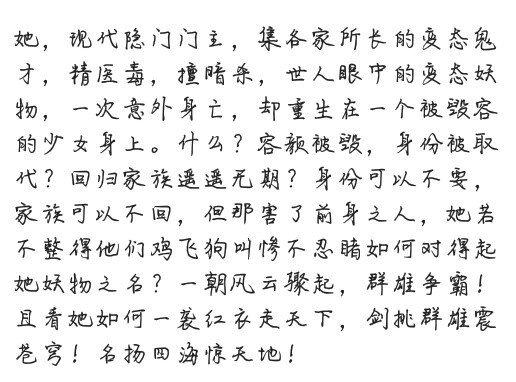 她，现代隐门门主，集各家所长的变态鬼
才，精医毒，撞暗杀，世人眼中的变态妖
物，一次意外身亡，却重生在一个被毁容
的少女身上。什么？容颜被毁，身份被取
代？回归家族遥遥无期？身份可以不要，
家族可以不回，但那害了前身之人，她若
不整得他们鸡飞狗叫惨不忍睹如何对得起
她妖物之名？一朝风云骤起，群雄争霸！
且看她如何一袭红衣走天下，剑挑群雄震
苍穹！名扬四海惊天地！